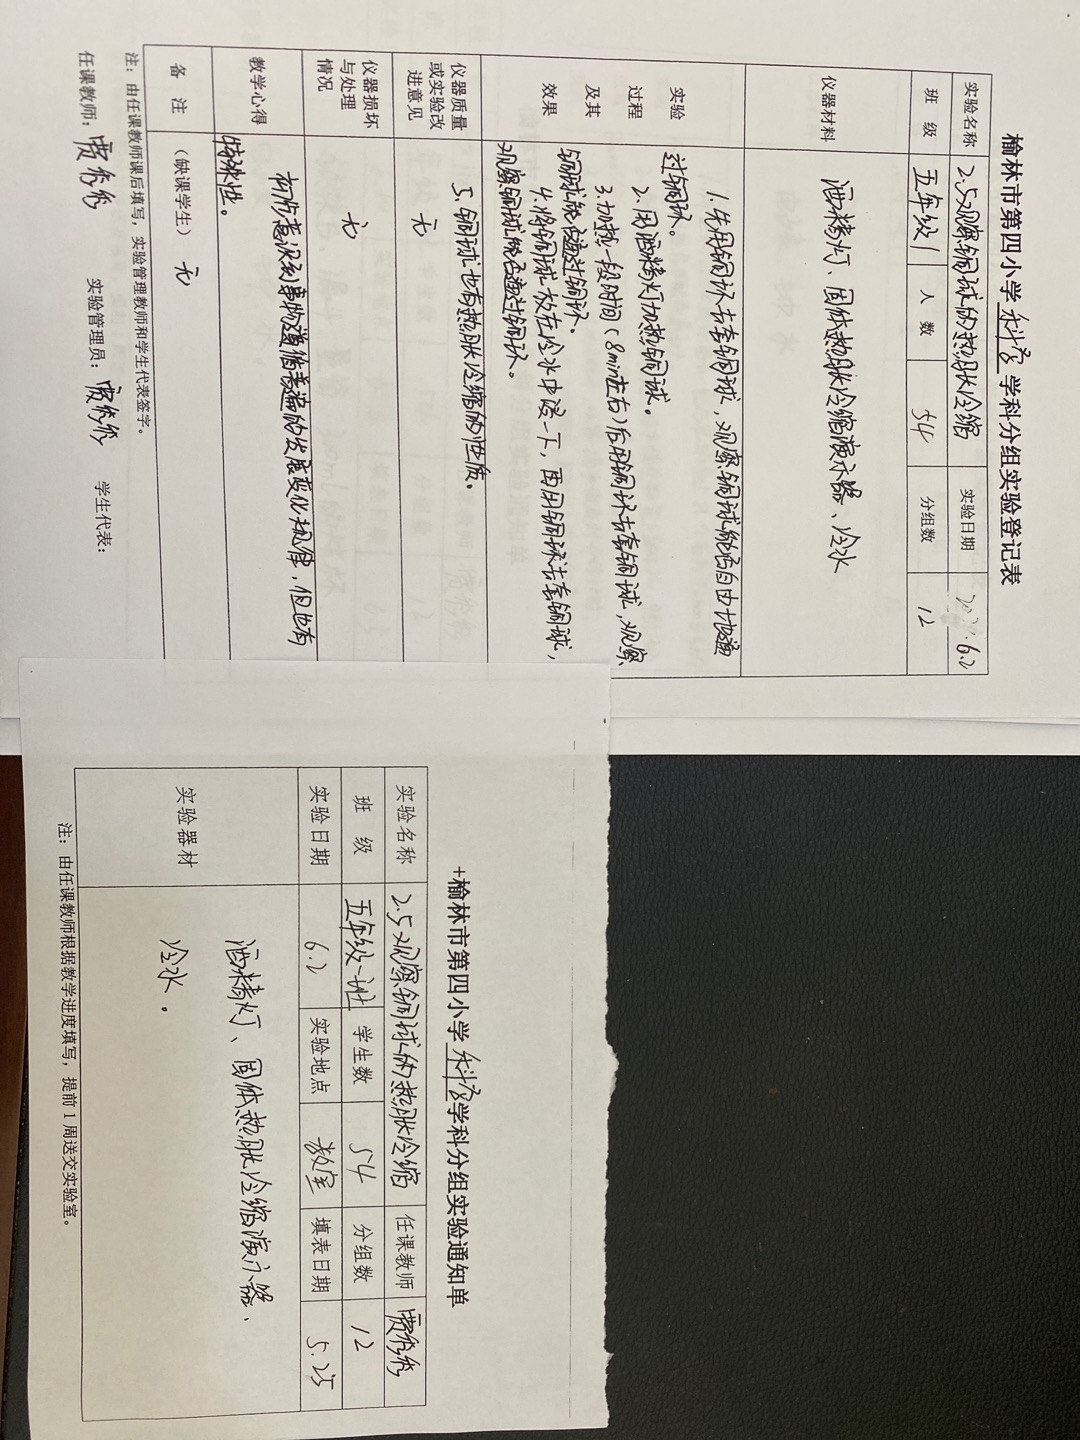 榆林市第四小学科学学科分组实验登记表
实验名称 2.5观察铜球的热胀冷缩 实验日期 6.2
班 级 五年级1 人 数 54 分组数 12
仪器材料 酒精灯、固体热胀冷缩演示器、冷水
实验
过程
及其
效果
1.先用铜环去套铜球，观察铜球能否自由地通
过铜环。
2.用酒精灯加热铜球。
3.加热一段时间（8min左右）后用铜环去套铜球，观察
铜球能否通过铜环。
4.将铜球放在冷水中浸一下，再用铜环去套铜球，
观察铜球能否通过铜环。
5.铜球也有热胀冷缩的性质。
仪器质量
或实验改
进意见
无
仪器损坏
与处理
情况
无
教学心得
初步意识到事物遵循普遍的发展变化规律，但也有
特殊性。
备 注 （缺课学生） 无
注：由任课教师课后填写，实验管理教师和学生代表签字。
任课教师：贾秀秀 实验管理员：贾秀秀 学生代表：
+榆林市第四小学科学学科分组实验通知单
实验名称 2.5观察铜球的热胀冷缩 任课教师 贾秀秀
班 级 五年级一班 学生数 54 分组数 12
实验日期 6.2 实验地点 教室 填表日期 5.25
实验器材
酒精灯、固体热胀冷缩演示器、
冷水。
注：由任课教师根据教学进度填写，提前1周送交实验室。